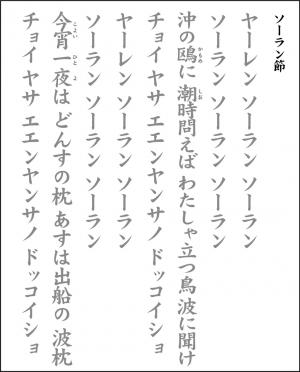 ソーラン節
ヤーレン ソーラン ソーラン
ソーラン ソーラン ソーラン
沖の鴎に 潮時問えば わたしゃ立つ鳥波に聞け
チョイ ヤサ エエンヤンサノ ドッコイショ
ヤーレン ソーラン ソーラン
ソーラン ソーラン ソーラン
今宵一夜は どんすの枕 あすは出船の 波枕
チョイ ヤサ エエンヤンサノ ドッコイショ